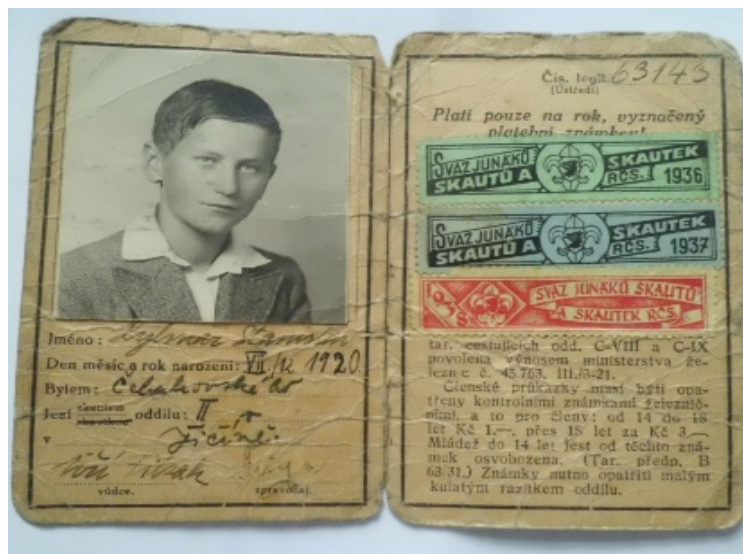 Jméno:
Den měsíc a rok narození: VII./12 1920
Bylem:
Jest skautem oddílu: II v
skautkou
v Jičíně
vůdce. zpravodaj.
Čís. legit. 63143
(Ústředí)
Platí pouze na rok, vyznačený
platební známkou!
SVAZ JUNÁKŮ SKAUTEK
SKAUTŮ A RČS. 1936
SVAZ JUNÁKŮ SKAUTEK
SKAUTŮ A RČS. 1937
1938 SVAZ JUNÁKŮ SKAUTŮ
A SKAUTEK RČS.
tar. cestujících odd. C-VIII a C-IX
povolena výnosem ministerstva že-
leznic č. 45.763. III./3-21.
Členské průkazky musí býti opa-
třeny kontrolními známkami železnič-
ními, a to pro členy: od 14 do 18
let Kč 1.—, přes 18 let za Kč 3.—
Mládež do 14 let jest od těchto zná-
mek osvobozena. (Tar. předp. B
63/31.) Známky nutno opatřiti malým
kulatým razítkem oddílu.